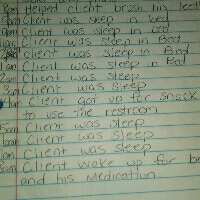 8pm Helped client brushing teeth
9pm Client was sleep in bed
Client was sleep in bed
Client was sleep in Bed
Client was sleep in Bed
1am Client was sleep in Bed
2am Client was sleep
3am Client was sleep
Client Got up for snack
to use the restroom
5am Client was sleep
6am Client was sleep
7am Client was sleep
8am Client woke up for
and his Medication